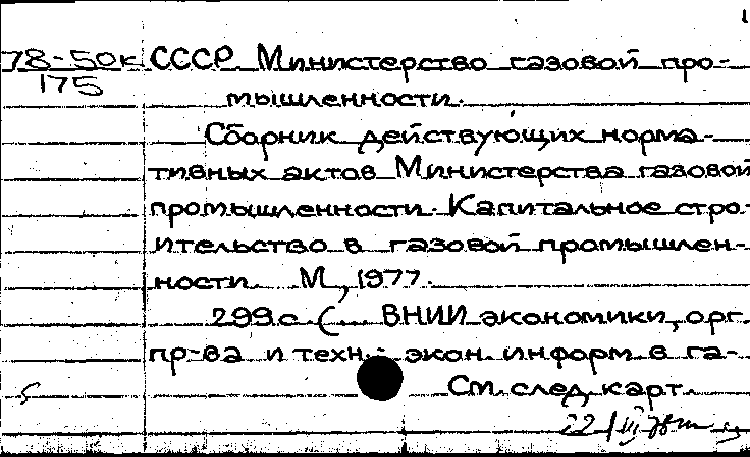 1
78-50к СССР. Министерство газовой про-
175
мышленности.
Сборник действующих норма-
тивных актов Министерства газовой
промышленности. Капитальное стро-
ительство в газовой промышлен-
ности. М., 1977.
299 с. (... ВНИИ экономики, орг.
пр-ва и техн.-экон. информ. в га-
См. след. карт.
22/VI 78